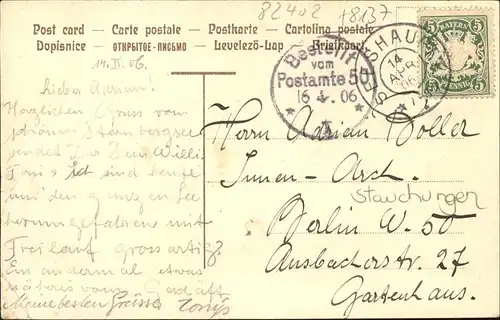 82402 +8137
Post card — Carte postale — Postkarte — Cartolina postale
Dopisnice — ОТКРЫТОЕ-ПИСЬМО — Levelező-Lap — Briefkaart
BAYERN
5 5
PFENNIG
14
APR
06
Bestellt
vom
Postamte 50
16 4. 06
14. IV. 06.
Lieber Adrian!
Herzlichen Gruss vom
schönen Starnbergersee
sendet Dir Dein Willi
Toni & ich sind heute
und den ganzen See
herumgefahren mit
Freilauf grossartig!
Ein andermal etwas
näheres vom
Meine besten Grüsse
Herrn Adrian Boller
Innen-Arch.
Stauchungen
Berlin W. 50
Ansbacherstr. 27
Gartenhaus.